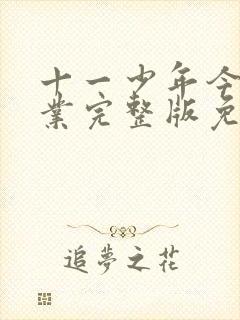 十一少年令
業完整版免
追夢之花